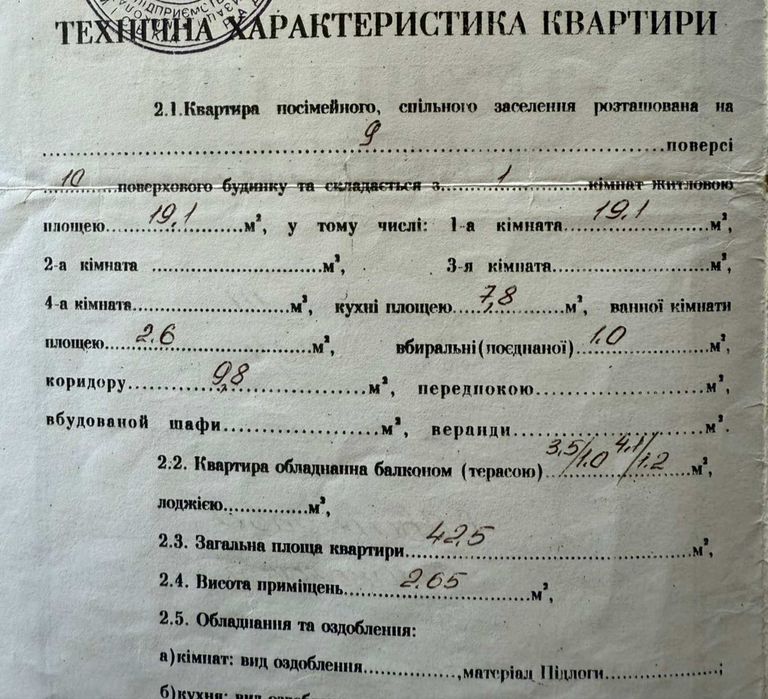 ПІДПРИЄМСТВ
ТЕХНІЧНА ХАРАКТЕРИСТИКА КВАРТИРИ
2.1.Квартира посімейного, спільного заселення розташована на
9 поверсі
10 поверхового будинку та складається з 1 кімнат житловою
площею 19,1 м², у тому числі: 1-а кімната 19.1 м²,
2-а кімната м², 3-я кімната м²,
4-а кімната м², кухні площею 7,8 м², ванної кімнати
площею 2.6 м², вбиральні (поєднаної) 1.0 м²,
коридору 9,8 м², передпокою м²,
вбудованой шафи м², веранди м².
2.2. Квартира обладнанна балконом (терасою) 3,5/1.0 4,1/1.2 м²,
лоджією м²,
2.3. Загальна площа квартири 42,5 м²,
2.4. Висота приміщень 2.65 м²,
2.5. Обладнання та оздоблення:
а) кімнат: вид оздоблення , матеріал Підлоги ;
б) кухня: вид